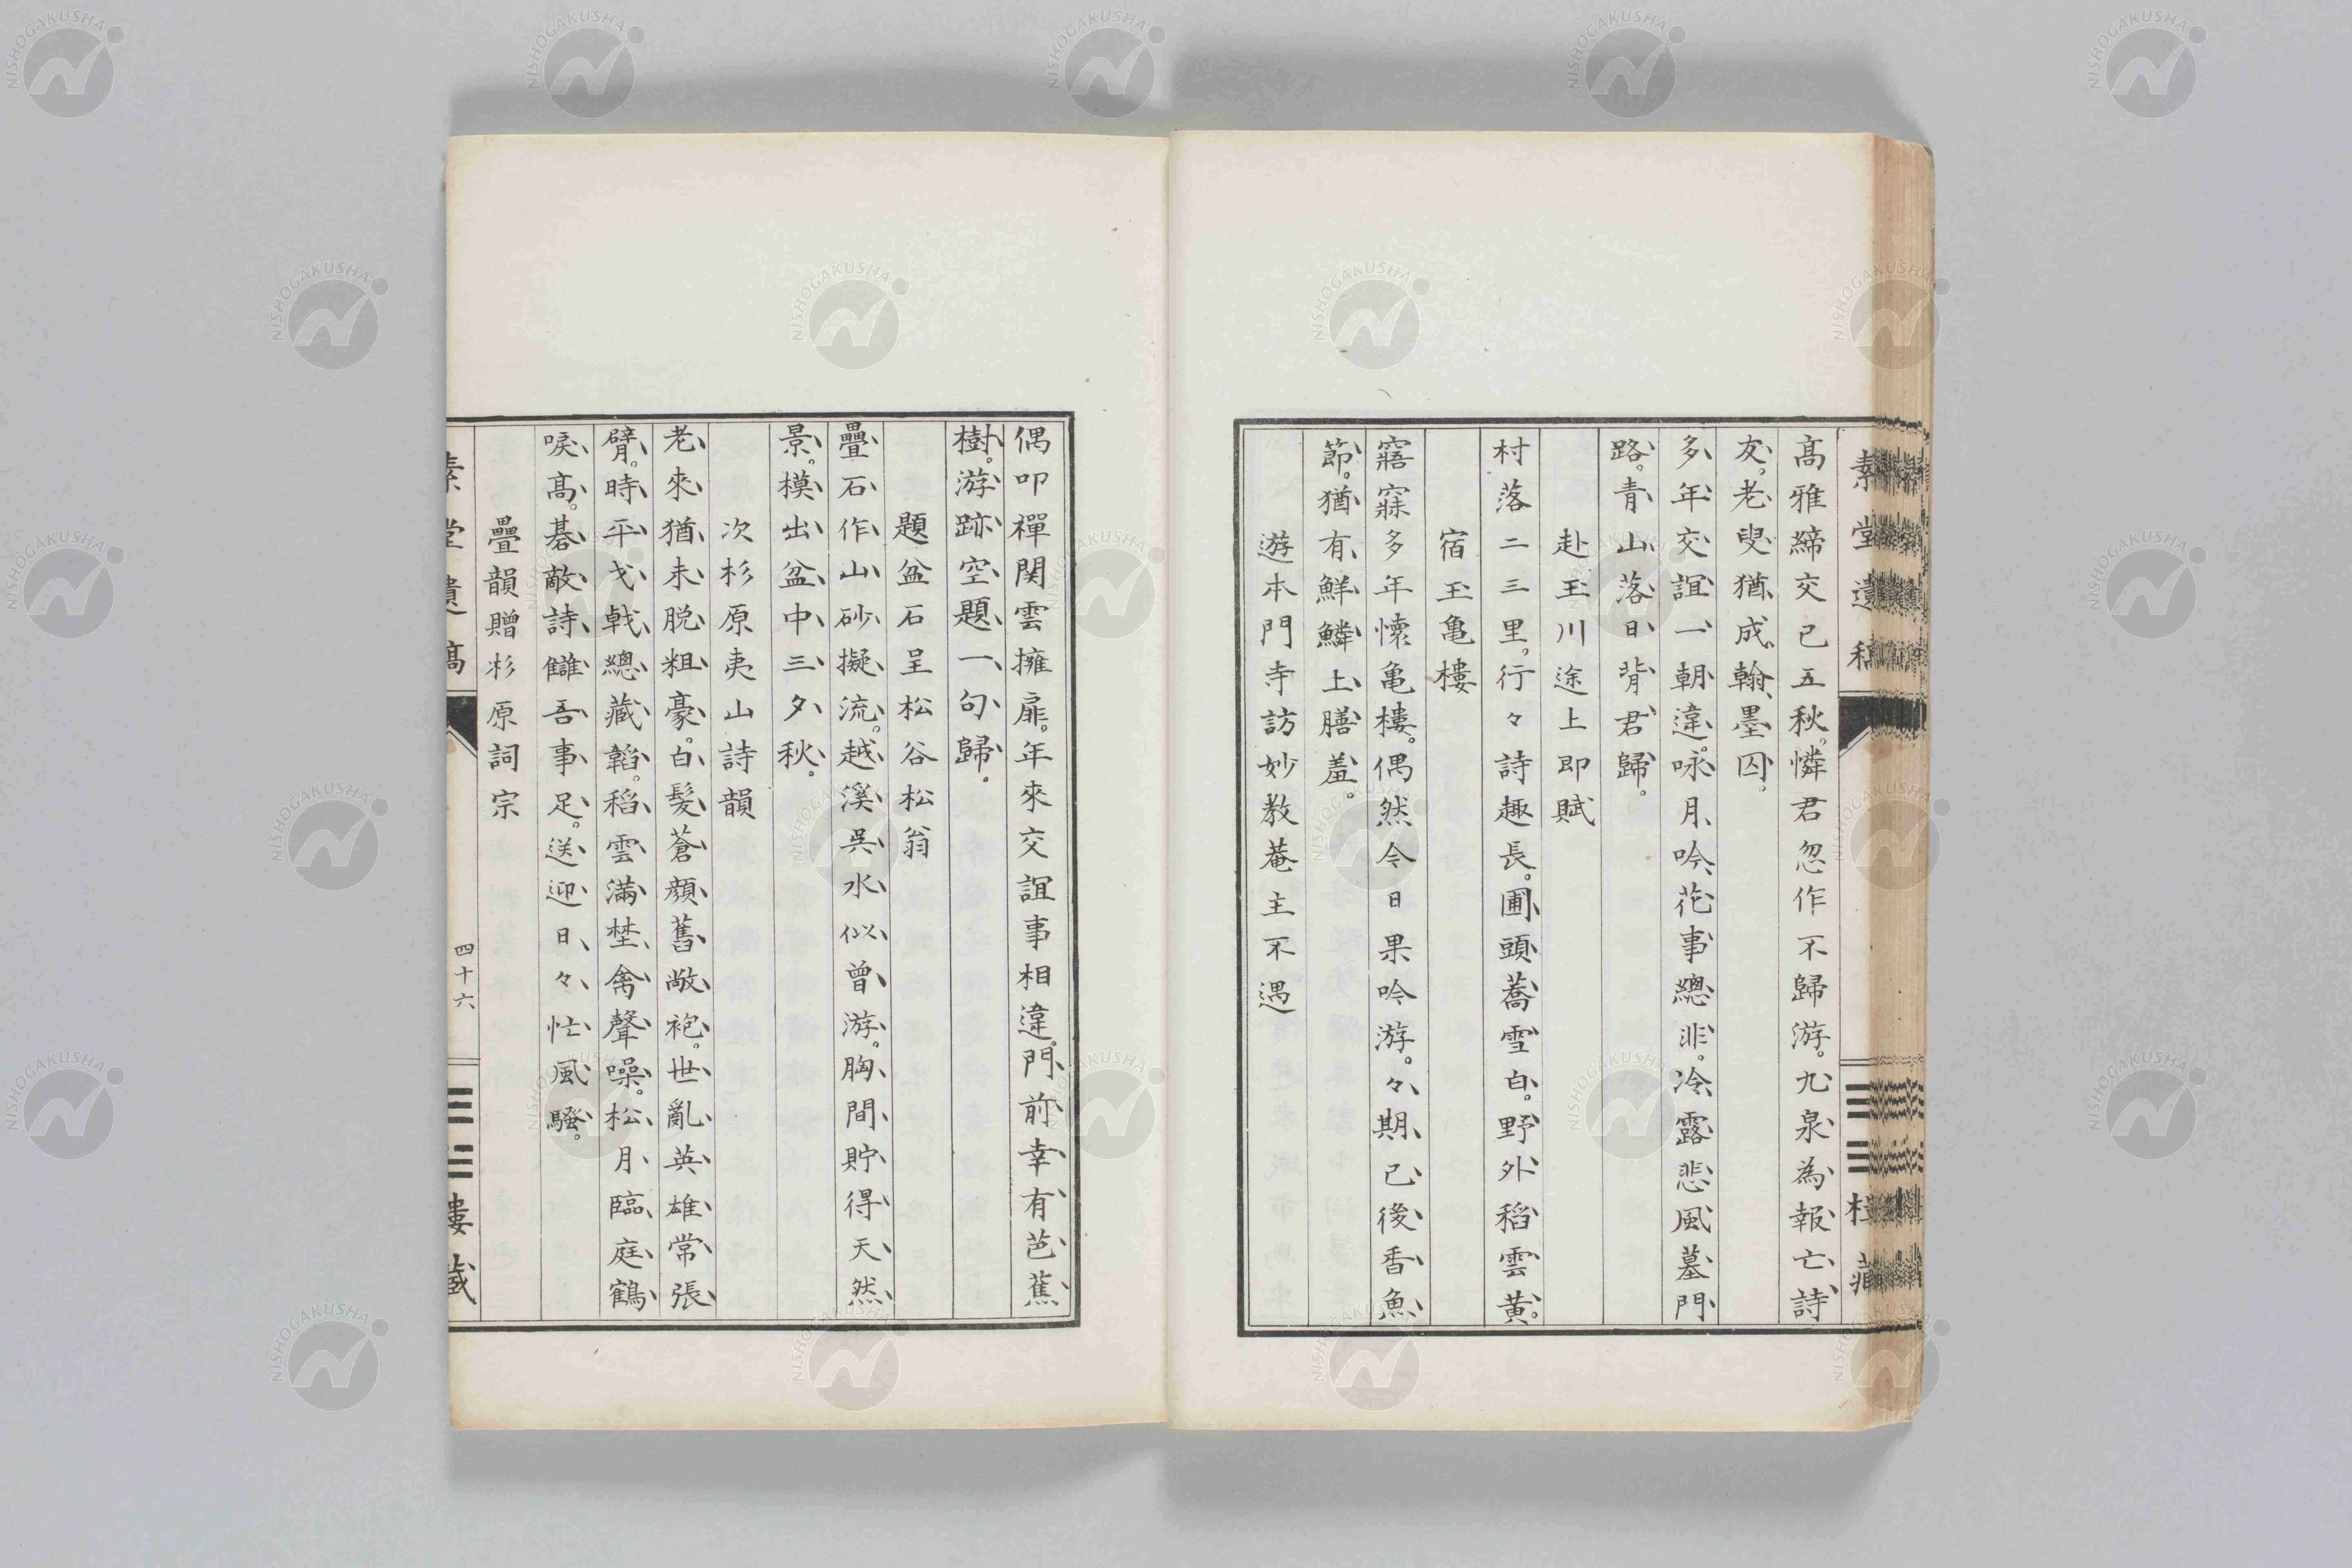 素堂遺稿
高雅締交已五秋。憐君忽作不歸游。九泉為報亡詩
友。老叟猶成翰墨囚。
多年交誼一朝違。咏月吟花事總非。冷露悲風墓門
路。青山落日背君歸。
赴玉川途上即賦
村落二三里。行々詩趣長。圃頭蕎雪白。野外稻雲黃。
宿玉亀樓
寤寐多年懷亀樓。偶然今日果吟游。々期已後香魚
節。猶有鮮鱗上膳羞。
遊本門寺訪妙教菴主不遇
偶叩禪関雲擁扉。年來交誼事相違。門前幸有芭蕉
樹。游跡空題一句歸。
題盆石呈松谷松翁
疊石作山砂擬流。越溪呉水似曾游。胸間貯得天然
景。模出盆中三夕秋。
次杉原夷山詩韻
老來猶未脱粗豪。白髪蒼顏舊敝袍。世亂英雄常張
臂。時平弋戟總藏韜。稻雲滿埜禽聲噪。松月臨庭鶴
唳高。碁敵詩讎吾事足。送迎日々忙風騷。
疊韻贈杉原詞宗
素堂遺稿
四十六
樓藏
NISHOGAKUSHA